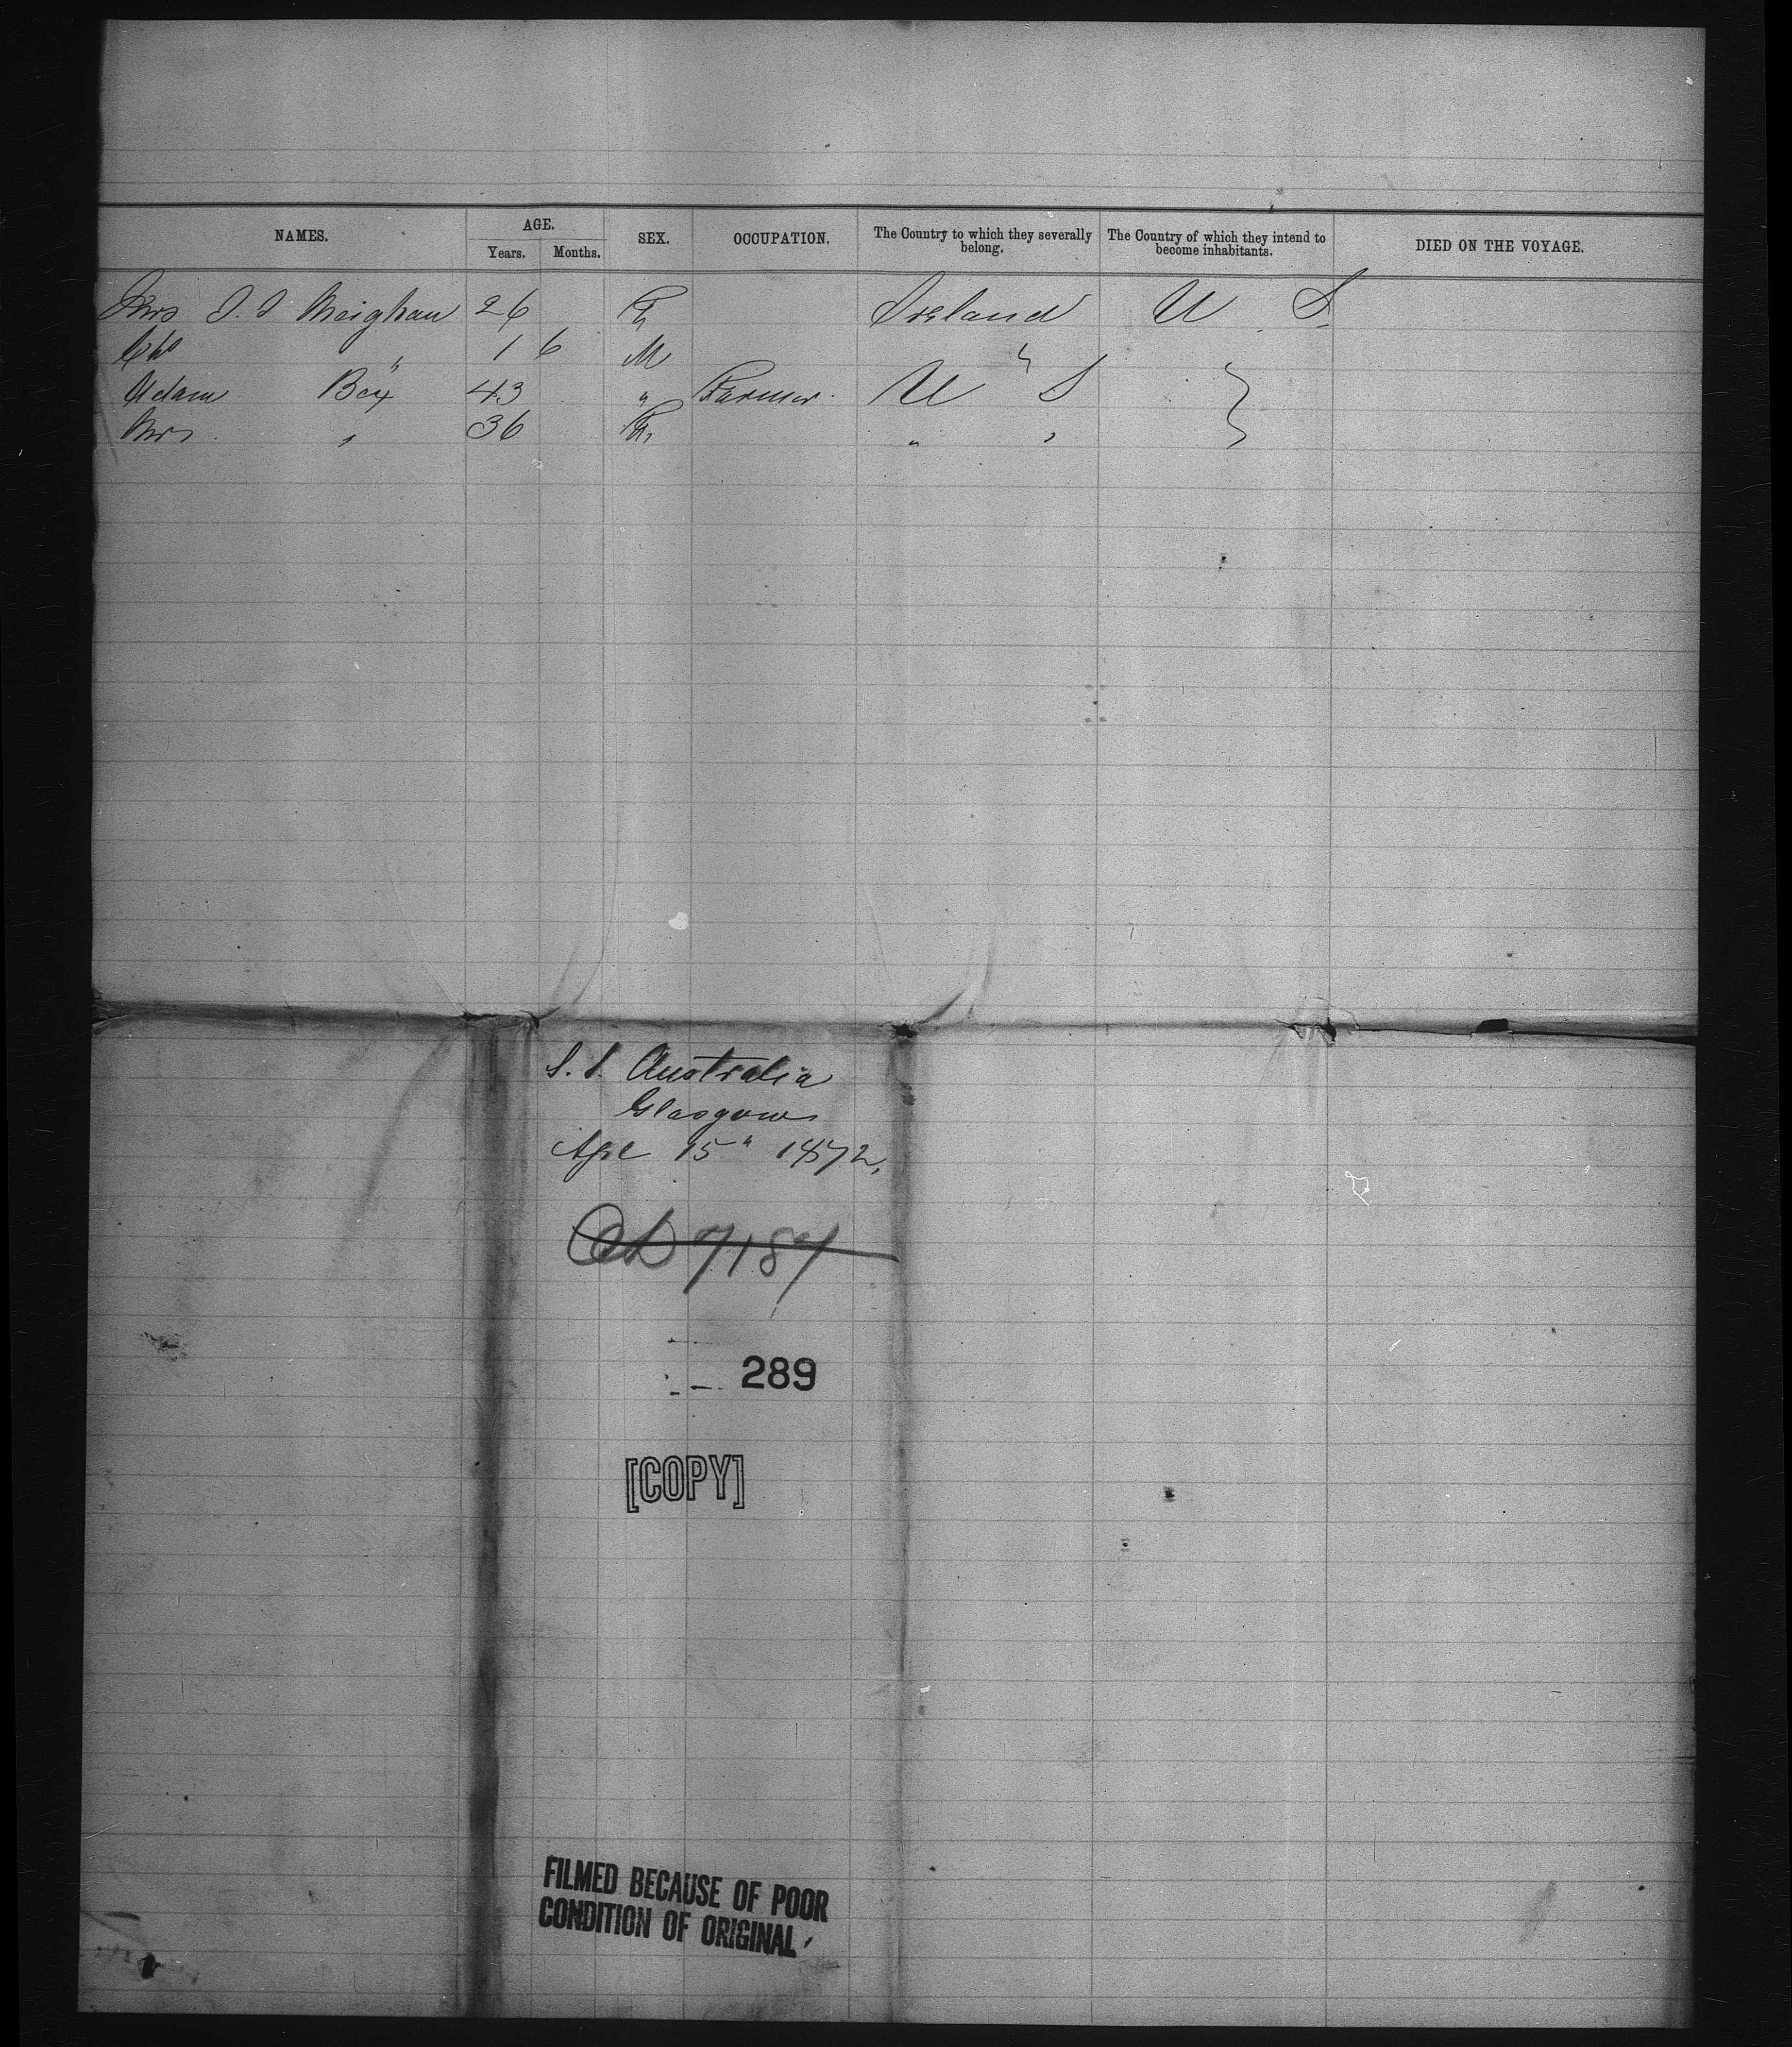 NAMES. AGE. SEX. OCCUPATION. The Country to which they severally belong. The Country of which they intend to become inhabitants. DIED ON THE VOYAGE.
Years. Months.
Mrs J. J Meighan 26 F Ireland U S.
Chs " 1 6 M "
Adam Bex 43 " Farmer. U S
Mrs " 36 F. " "
S. S. Australia
Glasgow
Apl 15" 1872.
7187
289
[COPY]
FILMED BECAUSE OF POOR
CONDITION OF ORIGINAL